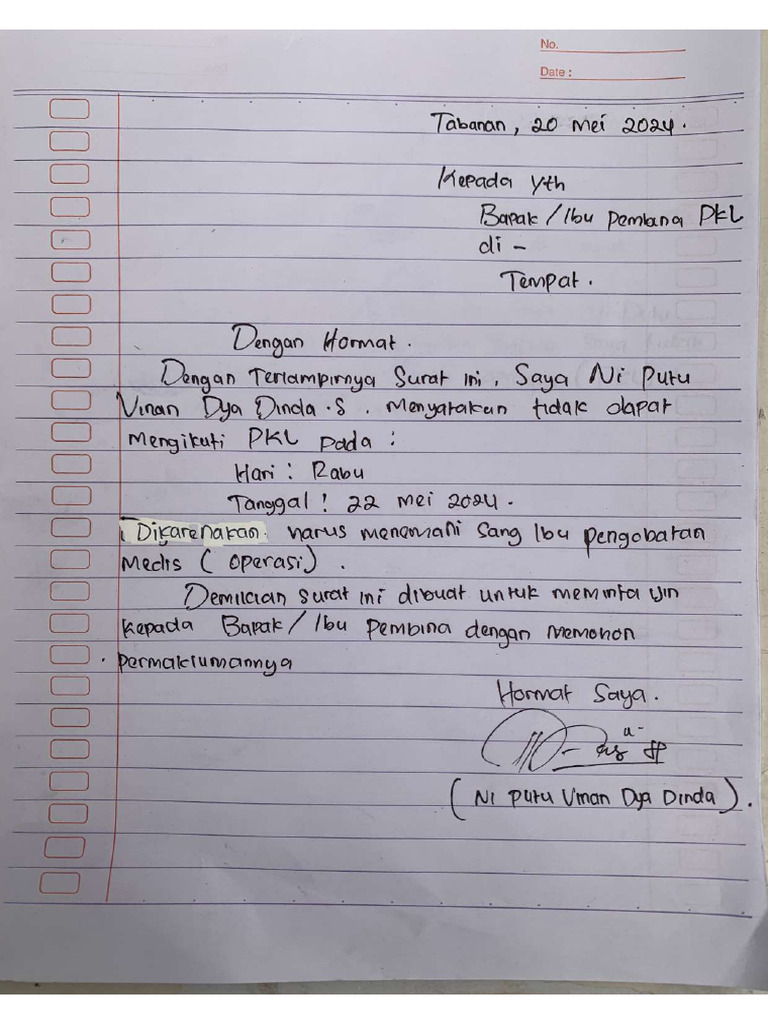 No.
Date :
Tabanan, 20 Mei 2024.
Kepada Yth
Bapak / Ibu Pembina PKL
di -
Tempat.
Dengan Hormat.
Dengan Terlampirnya Surat ini, Saya Ni Putu
Vinan Dya Dinda.S. Menyatakan tidak dapat
Mengikuti PKL pada :
Hari : Rabu
Tanggal : 22 Mei 2024.
Dikarenakan harus menemani Sang Ibu pengobatan
Medis ( operasi ) .
Demikian Surat ini dibuat untuk meminta ijin
kepada Bapak / Ibu Pembina dengan Memohon
permaklumannya
Hormat Saya.
( Ni Putu Vinan Dya Dinda ).